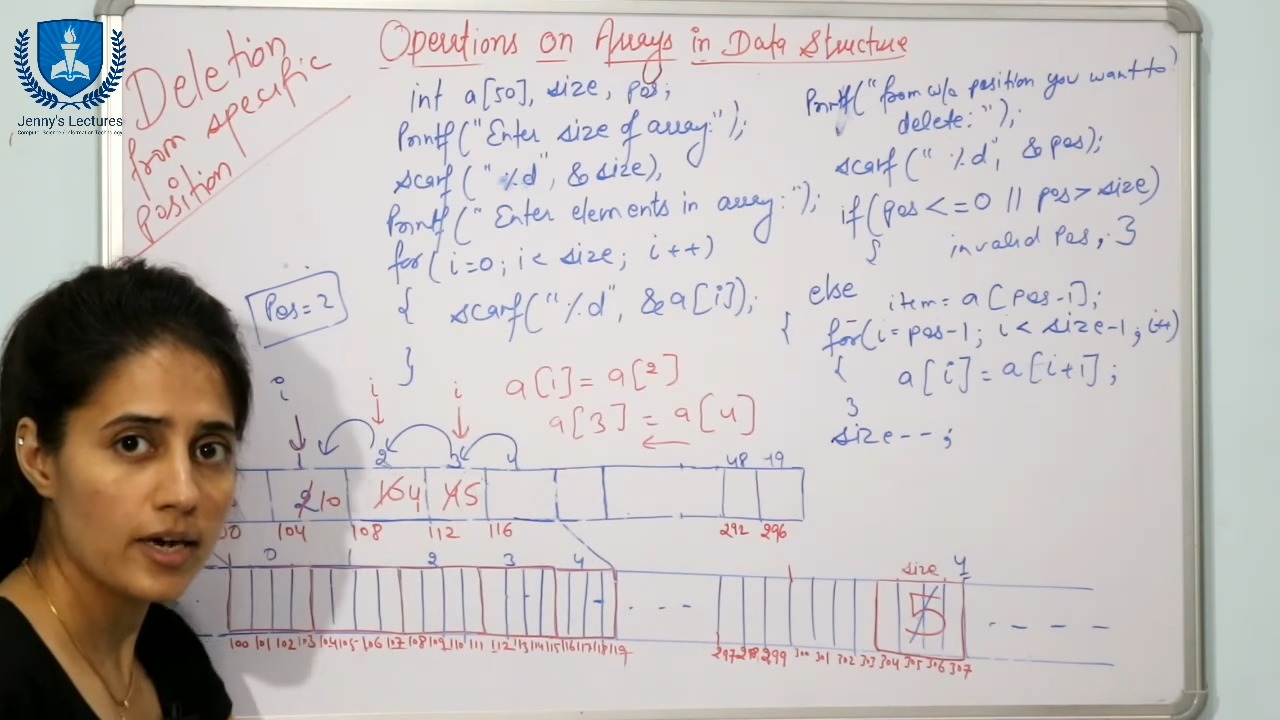 Jenny's Lectures
Computer Science/Information Technology
Deletion
from specific
position
Operations on Arrays in Data Structure
int a[50], size, pos;
Printf("Enter size of array:");
scanf("%d", &size),
Printf("Enter elements in array:");
for(i=0; i< size; i++)
{ scanf("%d", &a[i]);
}
Pos=2
Printf("from w/c position you want to
delete:");
scanf("%d", &pos);
if(pos<=0 || pos>size)
{ invalid pos, }
else item= a[pos-1];
{ for(i= pos-1; i < size-1; i++)
{ a[i]= a[i+1];
}
size--;
a[1]= a[2]
a[3] = a[4]
i i i
1 2 3 4 48 49
2 10 10 4 4 5
104 108 112 116 292 296
0 2 3 4 size 4
5
100 101 102 103 104 105 106 107 108 109 110 111 112 113 114 115 116 117 118 119 297 298 299 300 301 302 303 304 305 306 307